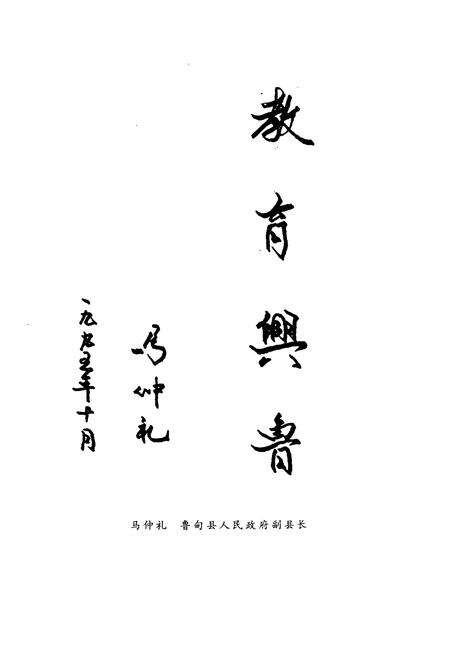 教育興魯
马仲礼
一九九五年十月
马仲礼 鲁甸县人民政府副县长